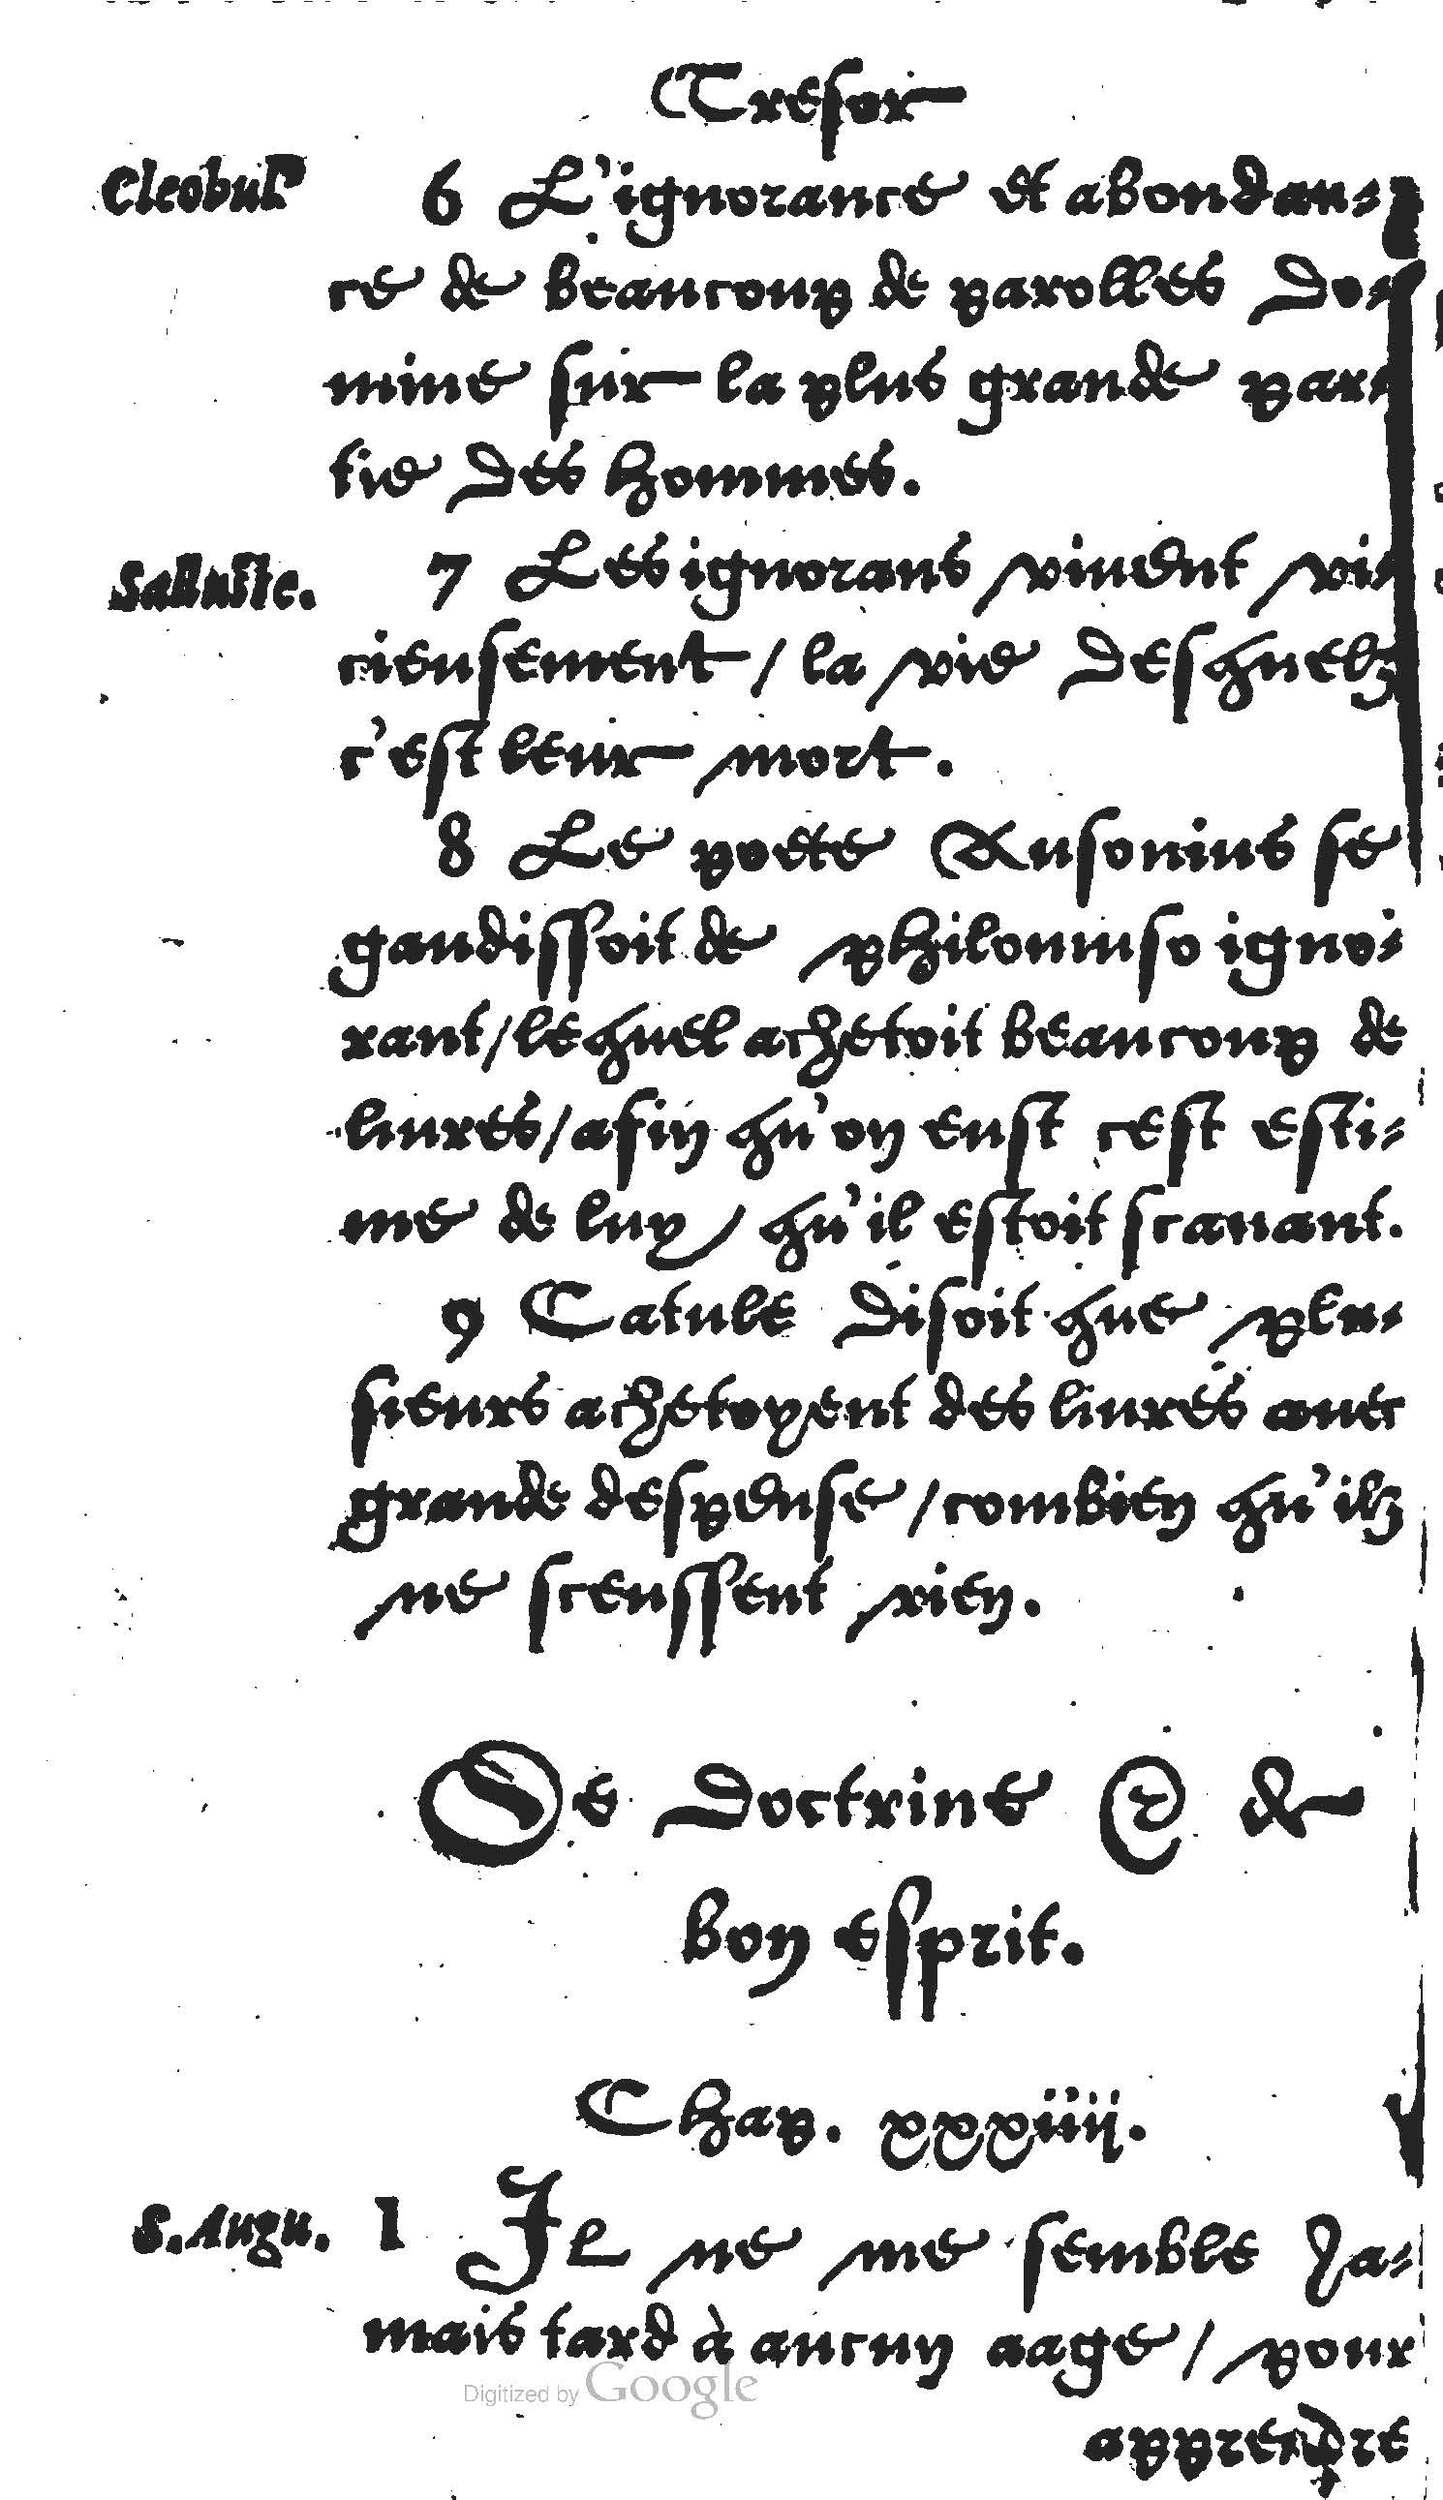 Tresor
Cleobul⁹
6 L'ignorance et abondan-
ce de beaucoup de parolles do-
mine sur la plus grande par-
tie des hommes.
Salluste.
7 Les ignorans viuent vi-
cieusement / la vie desquelz
c'est leur mort.
8 Le poete Ausonius se
gaudissoit de philomuso igno-
rant / lequel achetoit beaucoup de
liures / afin qu'on eust cest esti-
me de luy / qu'il estoit scauant.
9 Catule disoit que plu-
sieurs achetoyent des liures auec
grande despense / combien qu'ilz
ne sceussent rien.
De doctrine & de
bon esprit.
Chap. xxxiiij.
S. Augu.
1 Il ne me semble ja-
mais tard à aucun aage / pour
apprendre
Digitized by Google